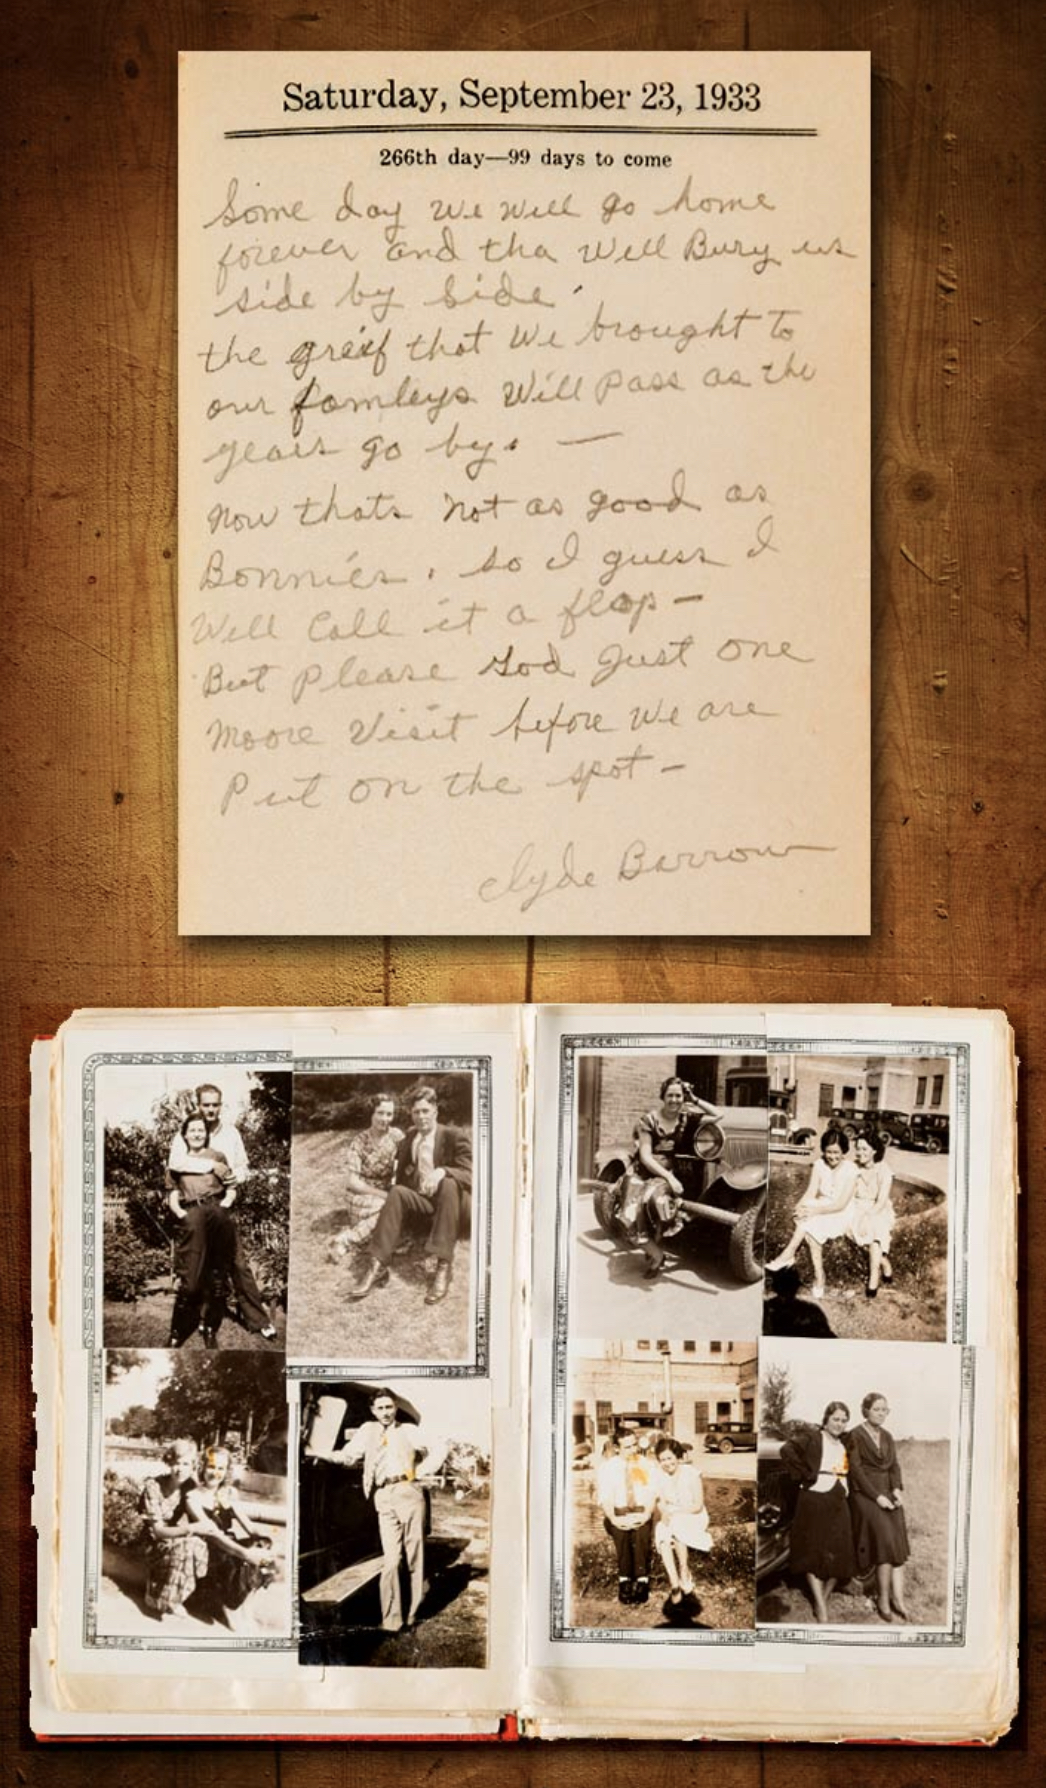 Saturday, September 23, 1933
266th day—99 days to come
Some day we will go home
forever and tha Will Bury us
side by side.
the greif that We brought to
our famleys Will pass as the
years go by. —
Now thats not as good as
Bonnies, so I guess I
Will Call it a flop —
But please God Just one
Moore Visit before we are
Put on the spot —
Clyde Barrow